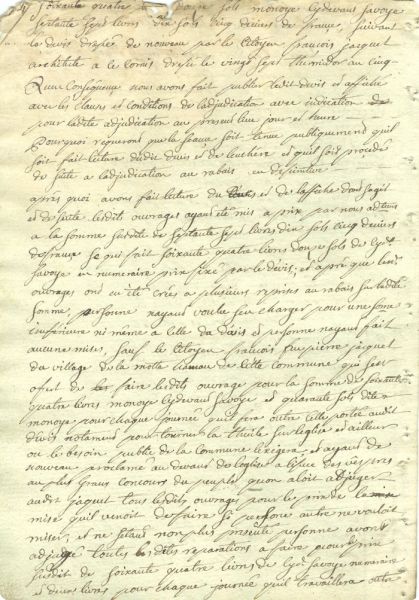 soixante quatre livres douze sols monoye cydevant savoye
septante sept livres dix sols cinq deniers de france, suivant
le devis dressée de nouveau par le Citoyen francois jacquet
architete a ce comis dresse le vingt sept thermidor an cinq
En Consequence nous avons fait publier ledit devis et affiche
avec les clauses et conditions de ladjudication avec indication
pour ladite adjudication au present lieu jour et heure
Pourquoi requerons que la seance soit tenue publiquement quil
soit fait lecture dudit devis et de lenchere et quil soit procedé
de suite a ladjudication au rabais en definitive
apres quoi avons fait lecture du et de laffiche dont sagit
et de suite lesdits ouvrages ayant eté mis a prix par nous
a la somme susdite de septante sept livres dix sols cinq deniers
de france ce qui fait soixante quatre livres douze sols de cydt
savoye en numeraire prix fixé par le devis, et apré que les
ouvrages ont eu eté criés a plusieurs reprises au rabais sur ladite
somme, personne nayant voulu sen charger pour une some
inferieure ni même a celle du devis et personne nayant fait
aucune mises, sauf le Citoyen francois feu pierre jacquet
du village de la motte de cette commune qui sest
offert de faire lesdits ouvrage pour la somme de soixante
quatre livres monoye cydevant savoye et quarante sols dite
monoye pour chaque journée que fera outre celle portée audit
devis notament pour tourner la thuile sur leglise et ailleur
ou le besoin public de la commune lexigera et ayant de
nouveau proclamé au devant de leglise a lissue des vêpres
au plus grand concours du peuple quon aloit adjuger
audit jaquet tous lesdits ouvrages pour le prix de la
mise quil venoit de faire si personne autre ne vouloit
miser, et ne setant non plus presenté personne avons
adjugé toutes lesdites reparations a faire pour le prix
susdit de soixante quatre livres de cydt savoye numeraire
et deux livres pour chaque journée quil travaillera outre